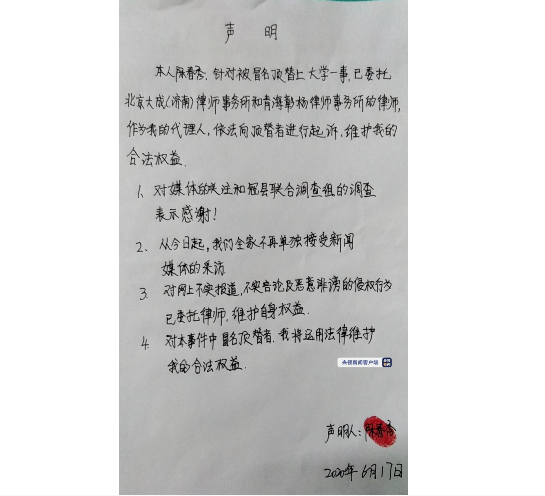 声 明
本人陈春秀,针对被冒名顶替上大学一事,已委托
北京大成(济南)律师事务所和青海勤杨律师事务所的律师,
作为我的代理人,依法向顶替者进行起诉,维护我的
合法权益.
1、对媒体的关注和冠县联合调查组的调查
表示感谢!
2、从今日起,我们全家不再单独接受新闻
媒体的采访
3. 对网上不实报道,不实言论及恶意诽谤的侵权行为
已委托律师,维护自身权益.
4. 对本事件中冒名顶替者,我将运用法律维护
我的合法权益.
央视新闻客户端
声明人:陈春秀
2020年6月17日